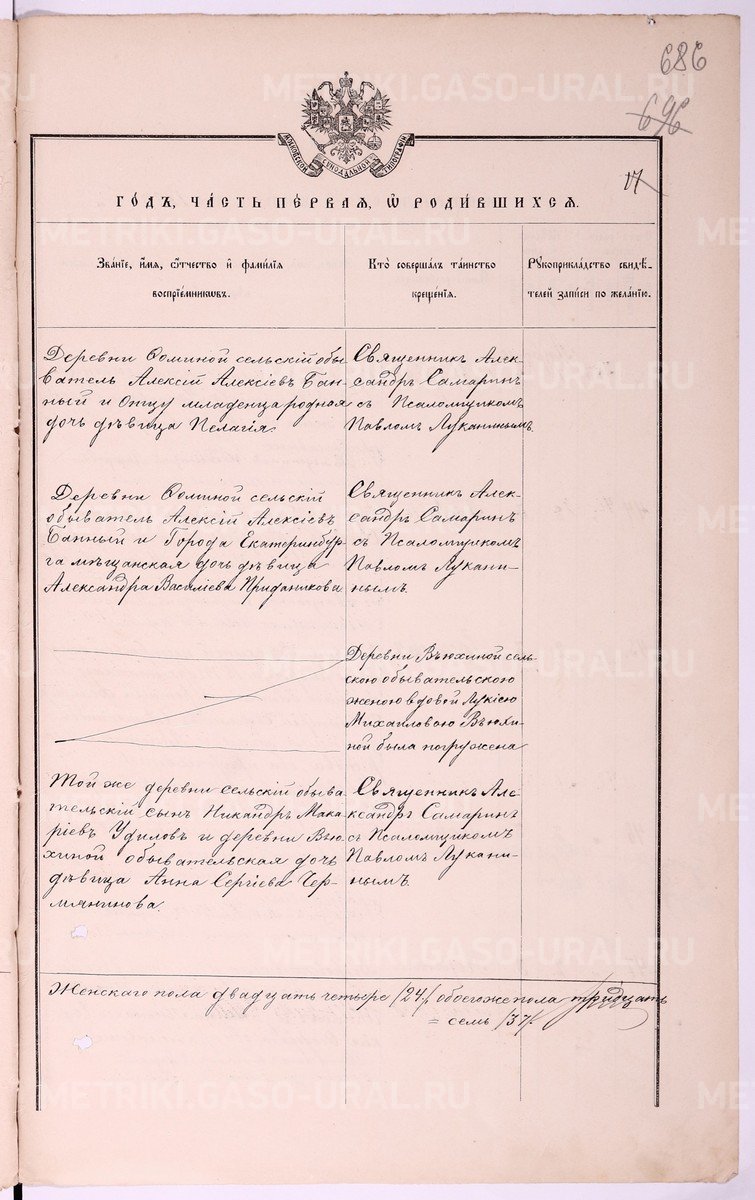 686
696
МОСКОВСКОЙ СѴНОДАЛЬНОЙ ТИПОГРАФІИ
17
ГО́ДЪ, ЧА́СТЬ ПЕ́РВАЯ, Ѡ҆ РОДИ́ВШИХСЯ.
Зва́ніе, и҆́мя, ѻ҆́тчество и҆ фами́лія
воспріе́мниковъ.
Кто̀ соверша́лъ та́инство
креще́нія.
Рꙋкоприкла́дство свидѣ́-
телей за́писи по жела́нію.
Деревни Ѳоминой сельскій обы-
ватель Алексій Алексіевъ Бан-
ный и Отцу младенца родная
дочь дѣвица Пелагія.
Священникъ Алек-
сандръ Самаринъ
съ Псаломщикомъ
Павломъ Луканинымъ.
Деревни Ѳоминой сельскій
обыватель Алексій Алексіевъ
Банный и Города Екатеринбур-
га мѣщанская дочь дѣвица
Александра Василіева Приданикова
Священникъ Алек-
сандръ Самаринъ
съ Псаломщикомъ
Павломъ Лукани-
нымъ.
Деревни Вьюхиной сель-
скою обывательскою
женою вдовой Лукіею
Михаиловою Вьюхи-
ной была погружена
Той же деревни сельскій обыва-
тельскій сынъ Никандръ Мака-
ріевъ Удиловъ и деревни Вью-
хиной обывательская дочь
дѣвица Анна Сергіева Чер-
мянинова.
Священникъ Але-
ксандръ Самаринъ
съ Псаломщикомъ
Павломъ Лукани-
нымъ.
Женскаго пола двадцать четыре /24/ обоегоже пола тридцать
= семь /37/.
METRIKI.GASO-URAL.RU